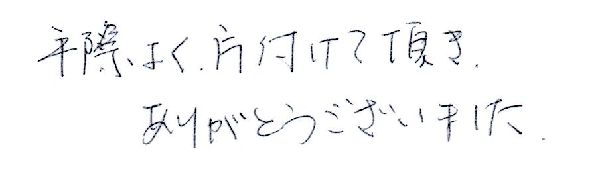 手際よく、片付けて頂き、
ありがとうございました。